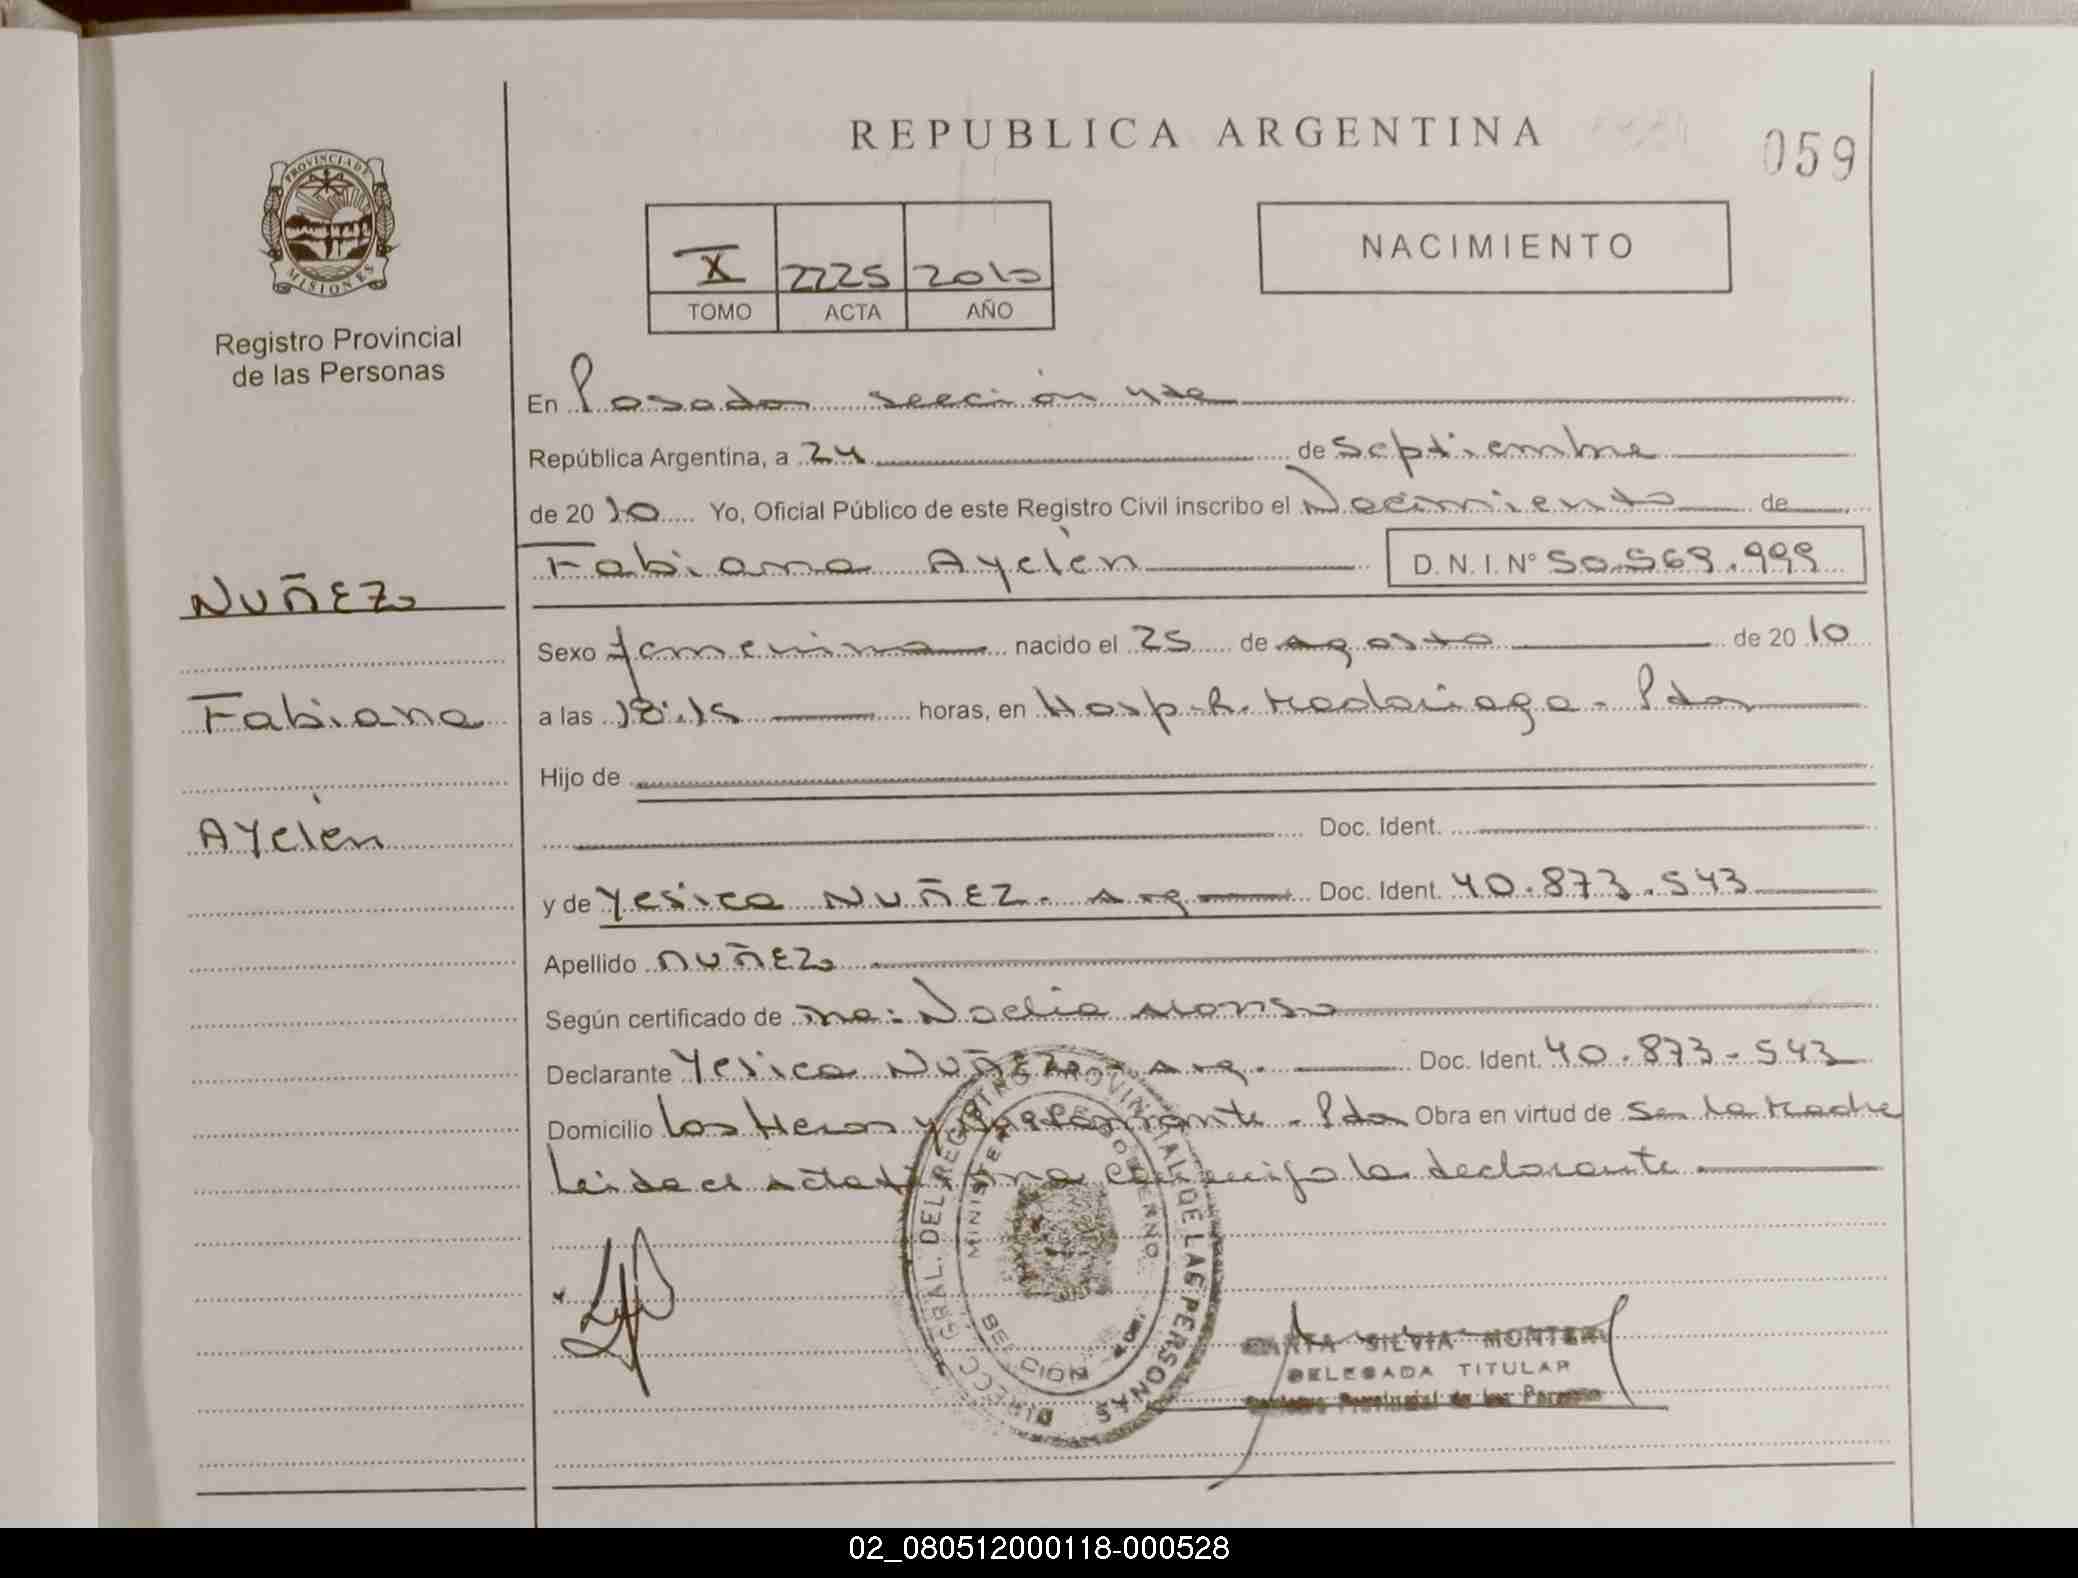 REPUBLICA ARGENTINA
059
PROVINCIA DE
MISIONES
Registro Provincial
de las Personas
X 2225 2010
TOMO ACTA AÑO
NACIMIENTO
En Posadas sección 4ta
República Argentina, a 24 de Septiembre
de 2010 Yo, Oficial Público de este Registro Civil inscribo el Nacimiento de
Fabiana Ayelén D. N. I. N° 50.569.999
NUÑEZ
Fabiana
Ayelén
Sexo femenino nacido el 25 de agosto de 2010
a las 18:15 horas, en Hosp. R. Madariaga - Pdas
Hijo de
Doc. Ident.
y de Yesica NUÑEZ. Arg Doc. Ident. 40.873.543
Apellido NUÑEZ
Según certificado de Noelia
Declarante Yesica NUÑEZ - Arg. Doc. Ident. 40.873-543
Domicilio Los Heros y - Pdas Obra en virtud de Ser la Madre
Leida el acta firma conmigo la declarante
DIRECC. GRAL. DEL REGISTRO PROVINCIAL DE LAS PERSONAS
MINISTERIO DE GOBIERNO
SECCION
SILVIA MONTERO
DELEGADA TITULAR
Registro Provincial de las Personas
02_080512000118-000528